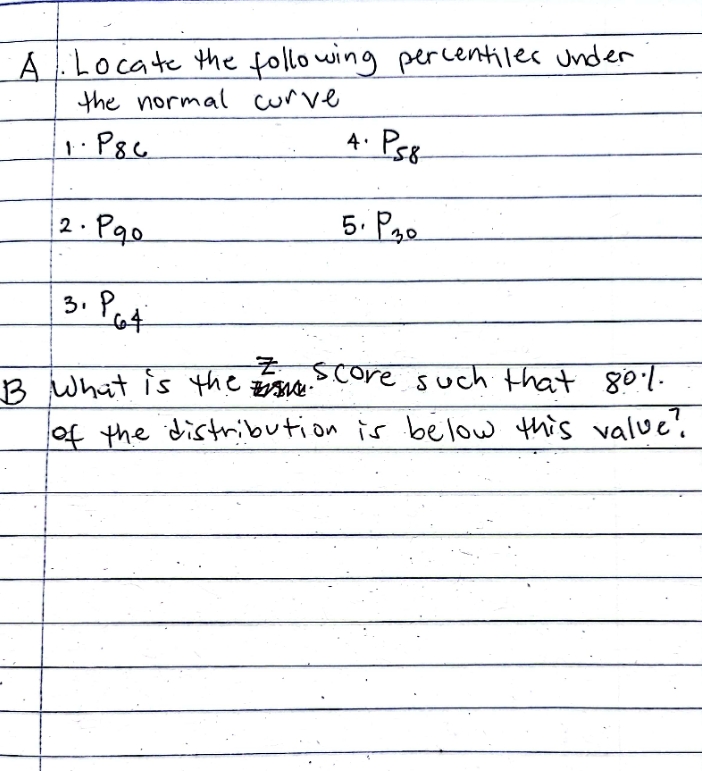 A. Locate the following percentiles under
the normal curve
1. P86
4. P58
2. P90
5. P30
3. P64
B What is the z score such that 80%
of the distribution is below this value?